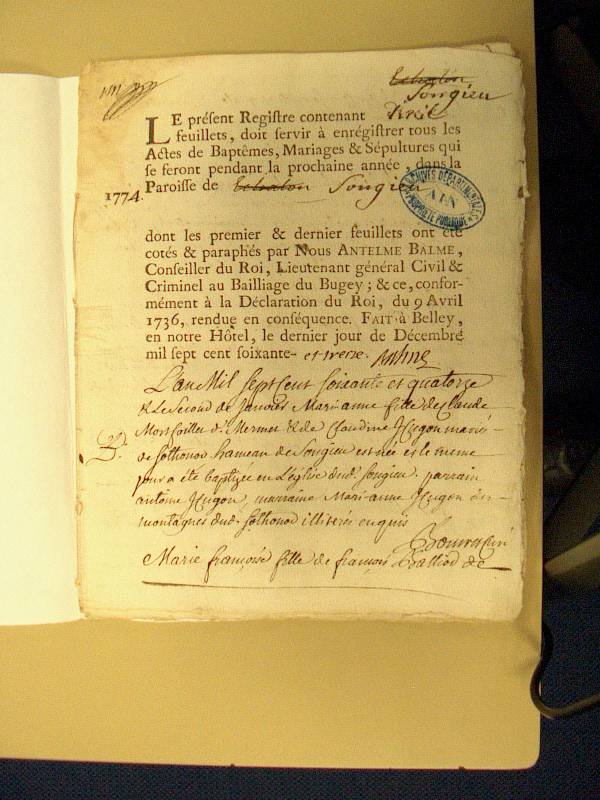 Echalon
Songieu
LE préſent Regiſtre contenant
feuillets, doit ſervir à enrégiſtrer tous les
Actes de Baptêmes, Mariages & Sépultures qui
ſe feront pendant la prochaine année, dans la
1774. Paroiſſe de Echalon Songieu
ARCHIVES DÉPARTEMENTALES
AIN
PROPRIÉTÉ PUBLIQUE
dont les premier & dernier feuillets ont été
cotés & paraphés par Nous ANTELME BALME,
Conſeiller du Roi, Lieutenant général Civil &
Criminel au Bailliage du Bugey; & ce, confor-
mément à la Déclaration du Roi, du 9 Avril
1736, rendue en conſéquence. FAIT à Belley,
en notre Hôtel, le dernier jour de Décembre
mil ſept cent ſoixante- et treize.
L'an Mil sept cent soixante et quatorze
& Le second de Janvier Marianne fille de Claude
d. Mermet & de Claudine Hugon mariés
de sothonod hameau de Songieu est née et le meme
jour a été baptizée en L'église dud. songieu. parrain
antoine Hugon, marraine Mari-anne Hugon
montagnes dud. sothonod illiterés enquis
Marie françoise fille de françois de